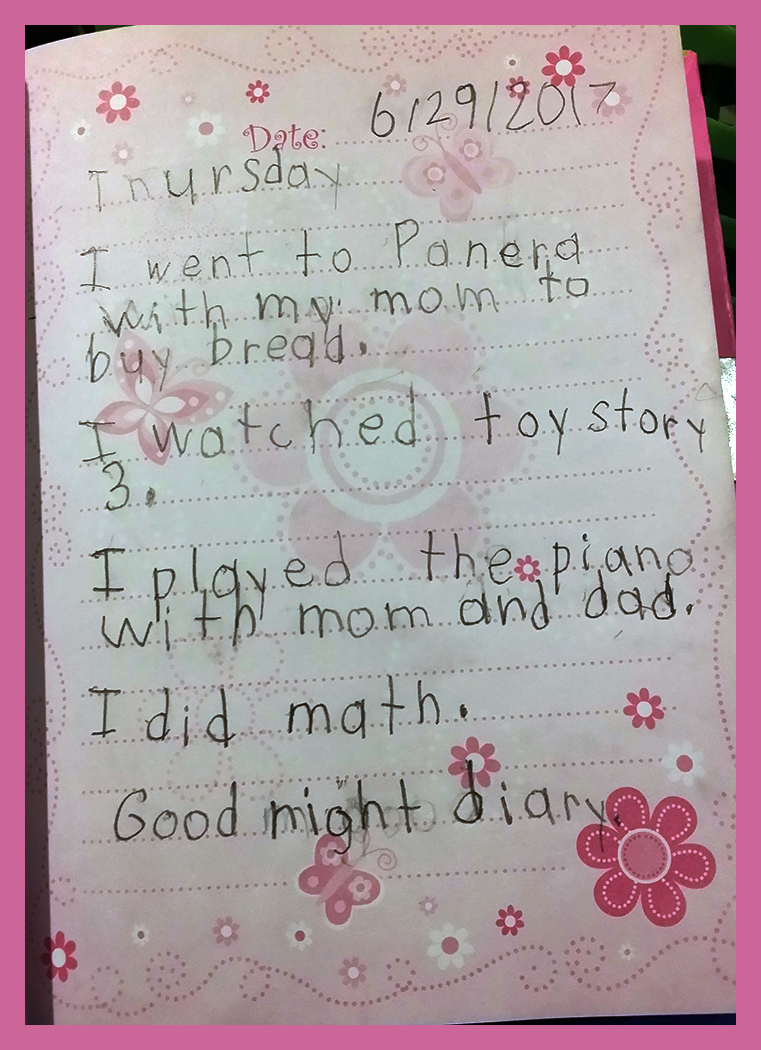 Date: 6/29/2017
Thursday
I went to Panera
with my mom to
buy bread.
I watched toy story
3.
I played the piano
with mom and dad.
I did math.
Good might diary.